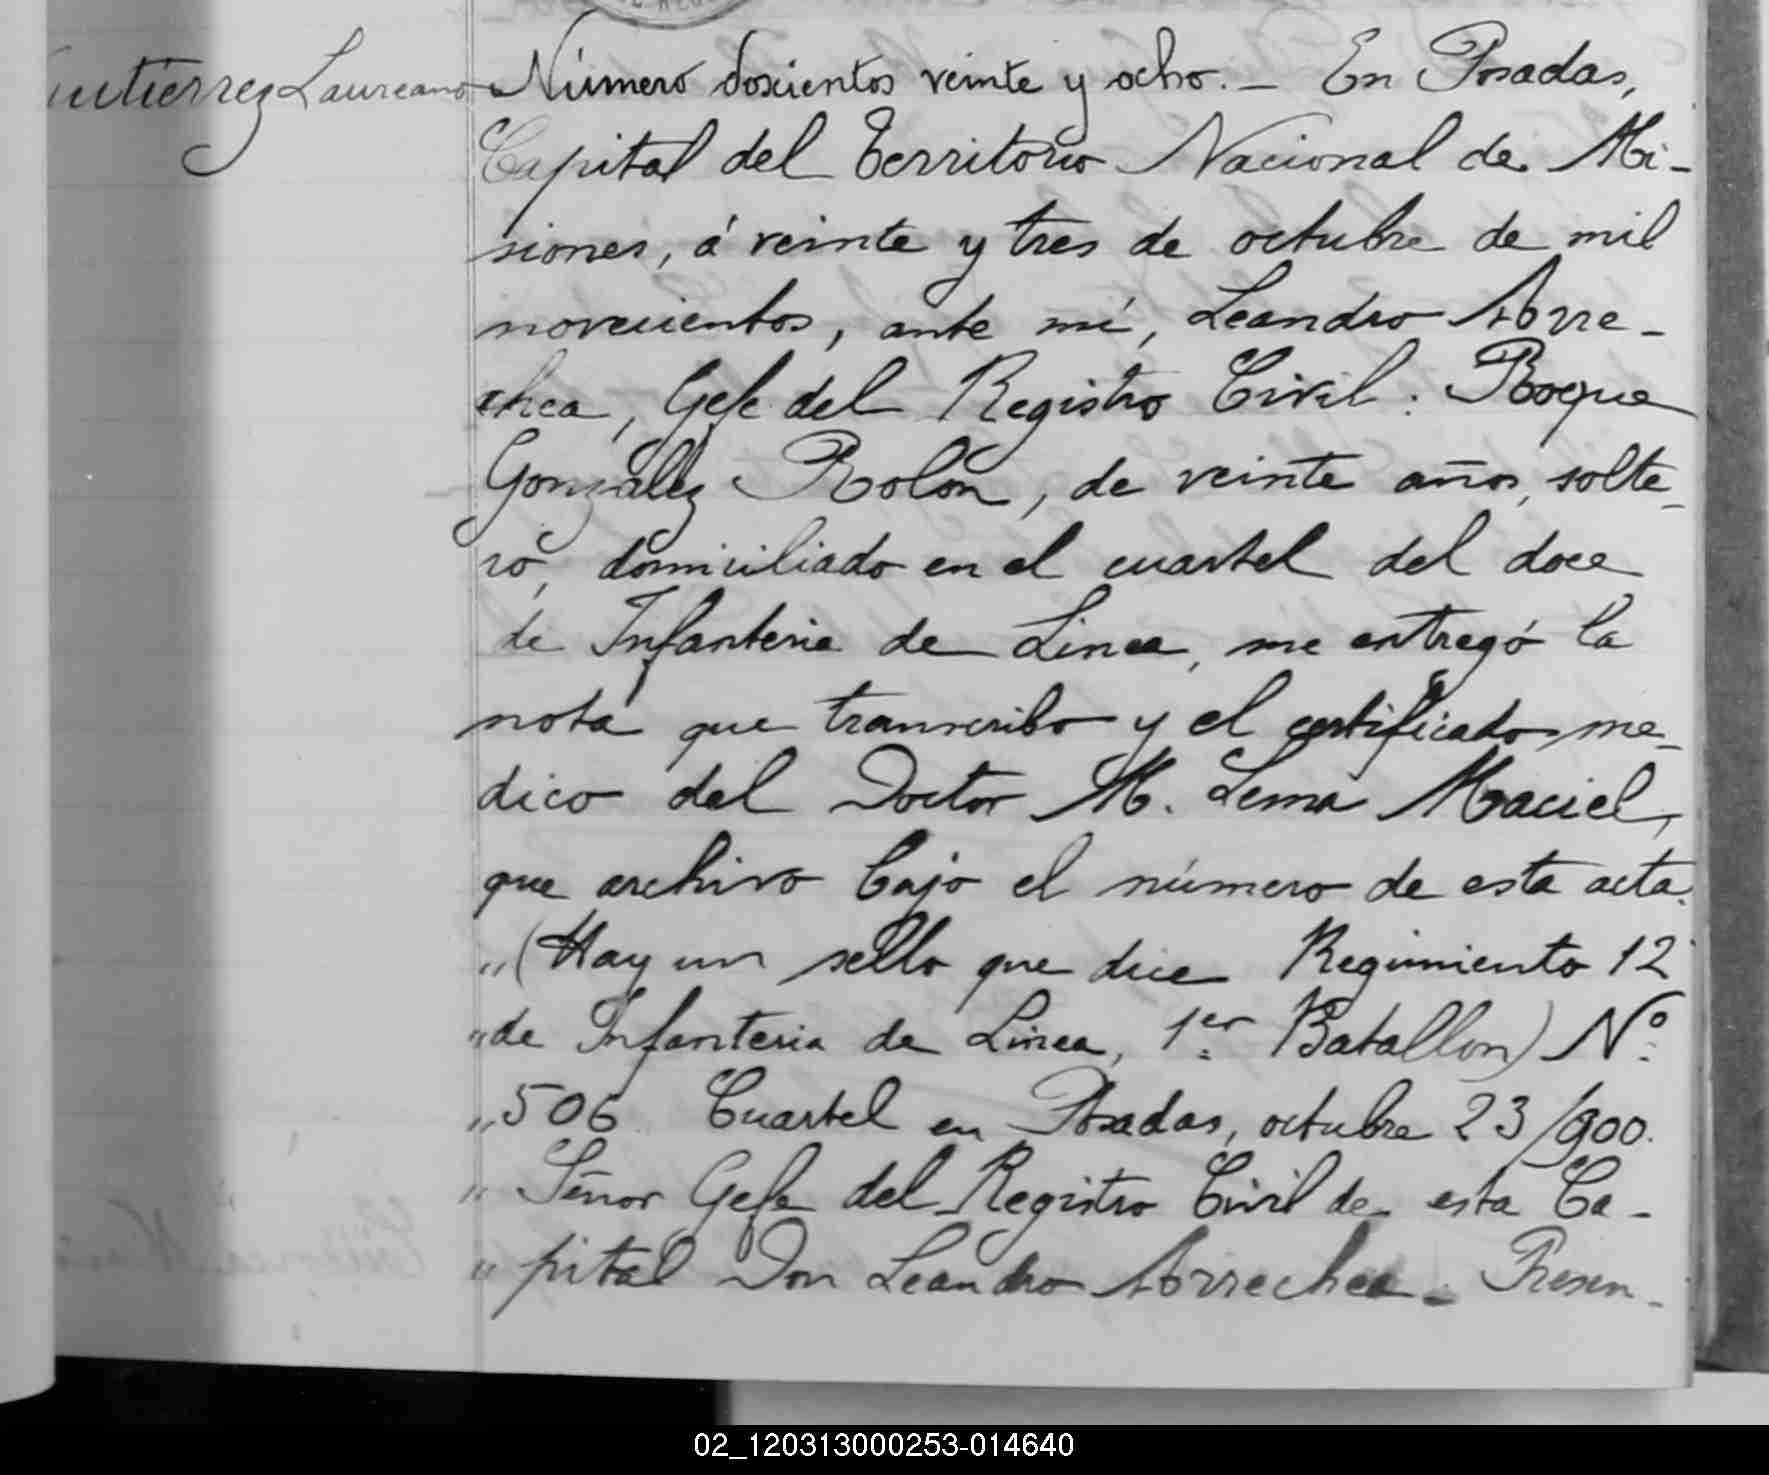 Gutierrez Laureano
Número doscientos veinte y ocho. - En Posadas,
Capital del Territorio Nacional de Mi-
siones, á veinte y tres de octubre de mil
novecientos, ante mí, Leandro Arre-
chea, Gefe del Registro Civil: Roque
Gonzalez Rolón, de veinte años, solte-
ro, domiciliado en el cuartel del doce
de Infanteria de Linea, me entregó la
nota que transcribo y el certificado me-
dico del Doctor M. Lema Maciel,
que archivo bajo el número de esta acta.
"(Hay un sello que dice Regimiento 12
"de Infanteria de Linea, 1er Batallon) Nº
"506 Cuartel en Posadas, octubre 23/900.
" Señor Gefe del Registro Civil de esta Ca-
" pital Don Leandro Arrechea - Presen-
02_120313000253-014640